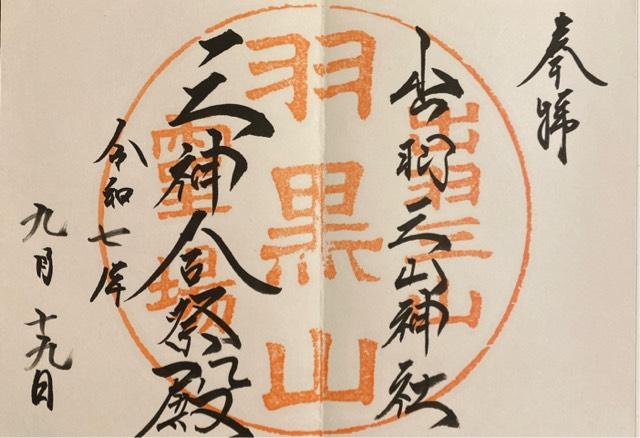 奉拝
出羽三山神社
三神合祭殿
令和七年
九月十九日
出羽三山
羽黒山
霊場